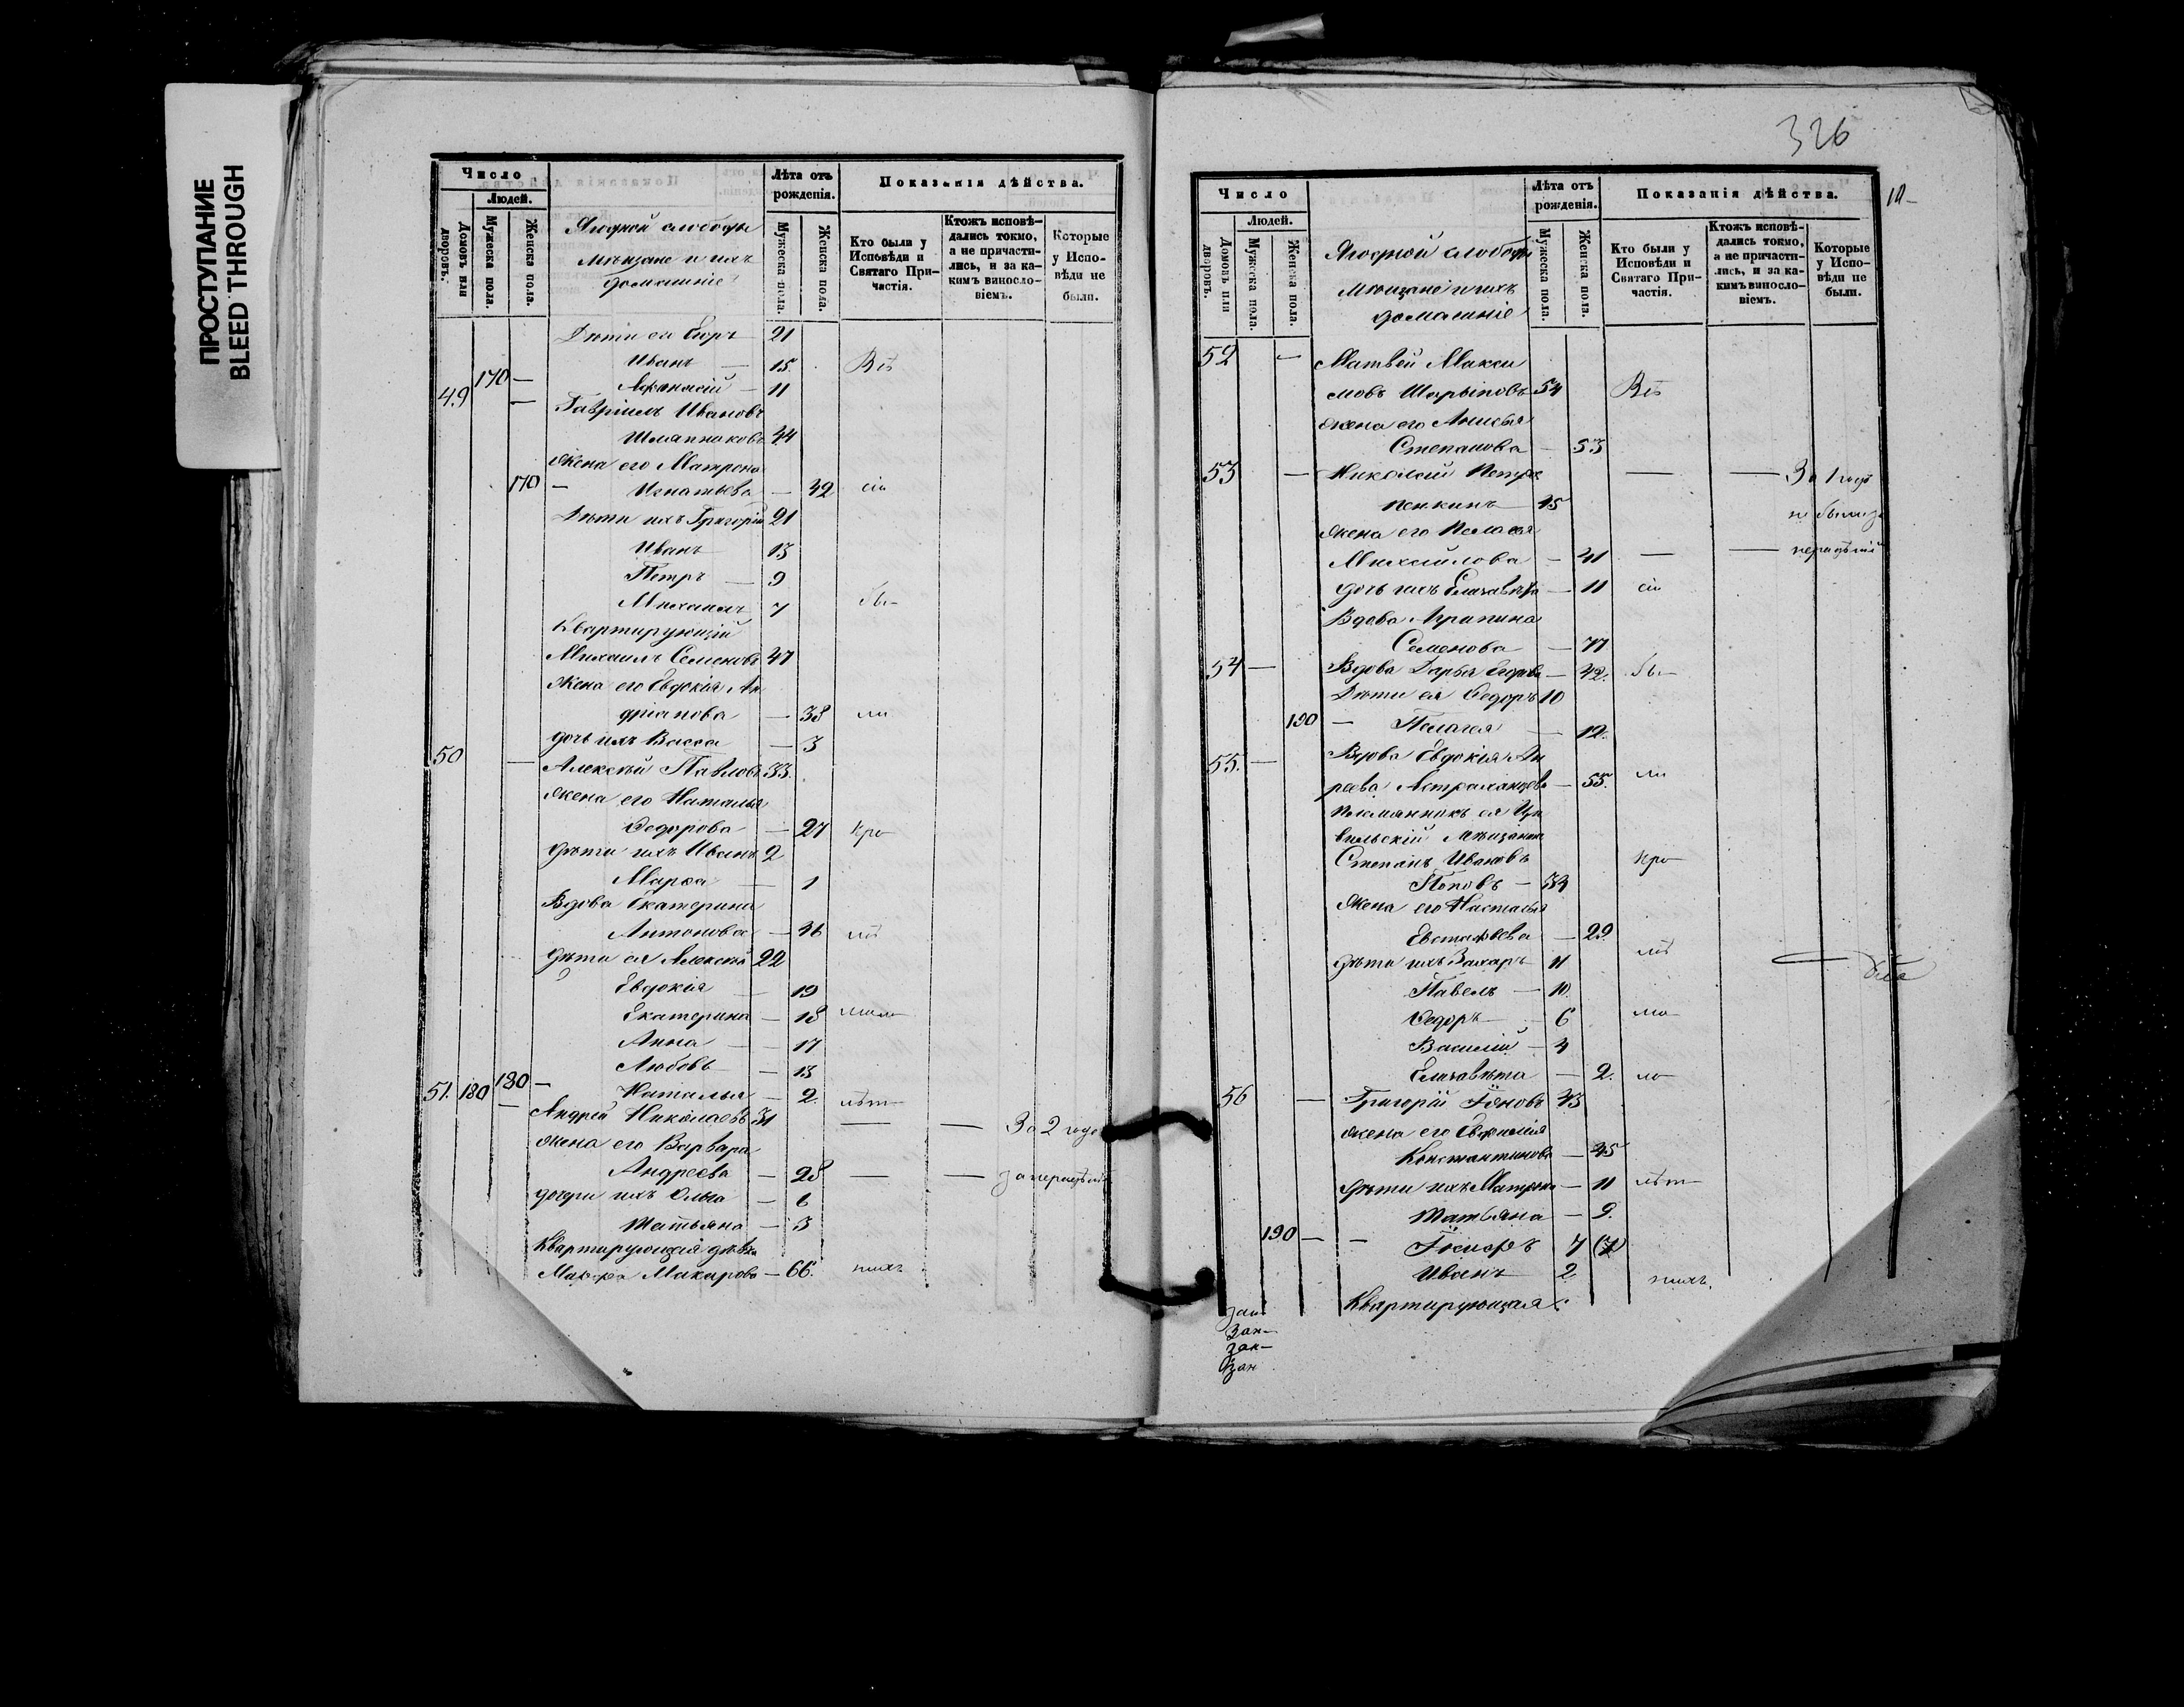 ПРОСТУПАНИЕ
BLEED THROUGH
Число
Людей.
Домовъ или дворовъ.
Мужеска пола.
Женска пола.
Ягодной слободы
мѣщане и ихъ
домашніе
Лѣта отъ рожденія.
Мужеска пола.
Женска пола.
Показанія дѣйства.
Кто были у Исповѣди и Святаго Причастія.
Ктожъ исповѣдались токмо, а не причастились, и за какимъ винословіемъ.
Которые у Исповѣди не были.
Дѣти ея Егоръ 21
Иванъ — 15 Всѣ
170 — Афонасій — 11
49 — Гавріилъ Ивановъ
Шляпниковъ 44
Жена его Матрона
170 — Игнатьева — 42 сіи
Дѣти ихъ Григорій 21
Иванъ 13
Петръ — 9
Михаилъ 7 бы-
Квартирующій
Михаилъ Семеновъ 47
Жена его Евдокія Ан
дріанова — 38 ли
дочь ихъ Васса — 3
50 — Алексѣй Павловъ 33.
Жена его Наталья
Ѳедорова — 27 кро-
дѣти ихъ Иванъ 2
Марѳа — 1
Вдова Екатерина
Антонова — 46 мѣ
дѣти ея Алексѣй 22
Евдокія — 19
Екатерина — 18
Анна — 17
Любовь — 13
180 — Наталья — 2. лѣт-
51. 180 — Андрей Николаевъ 31 — — За 2 года
Жена его Варвара
Андреева — 28 — — за нерадѣніе
дочери ихъ Ольга — 6
Татьяна — 3
Квартирующія дѣвка
Марѳа Макарова — 66. нихъ
326
Число
Людей.
Домовъ или дворовъ.
Мужеска пола.
Женска пола.
Ягодной слободы
Мѣщане и ихъ
домашніе
Лѣта отъ рожденія.
Мужеска пола.
Женска пола.
Показанія дѣйства.
Кто были у Исповѣди и Святаго Причастія.
Ктожъ исповѣдались токмо, а не причастились, и за какимъ винословіемъ.
Которые у Исповѣди не были.
52 — Матвей Макси
мовъ Шарыповъ 54 Всѣ
Жена его Анисья
Степанова — 53
53 — Николай Петров — — За 1 годъ
Пенкинъ 45 не были за
Жена его Пелагея
Михайлова — 41 — — нерадѣніе
дочь ихъ Елизавѣта — 11 сіи
Вдова Агрипина
Семенова — 77
54 — Вдова Дарья Егорова — 42. бы-
Дѣти ея Ѳедоръ 10
190 — Пелагея — 12.
55. — Вдова Евдокія Ан
реева Астраханцева — 55. ли
племянникъ ея Ци
вильскій мѣщанинъ
Степанъ Ивановъ кро-
Поповъ — 34
Жена его Насталья
Евстафьева — 29.
дѣти ихъ Захаръ — 11 мѣ
Павелъ — 10.
Ѳедоръ — 6
Василій — 4
Елизавѣта — 2. ло-
56 — Григорій Іоновъ 43
Жена его Евфимія
Константинова — 45
дѣти ихъ Матрона — 11 лѣт-
Татьяна — 9.
190 — — Іосифъ 7 (7)
Иванъ 2 нихъ.
Квартирующая:
зак-
зак-
зак-